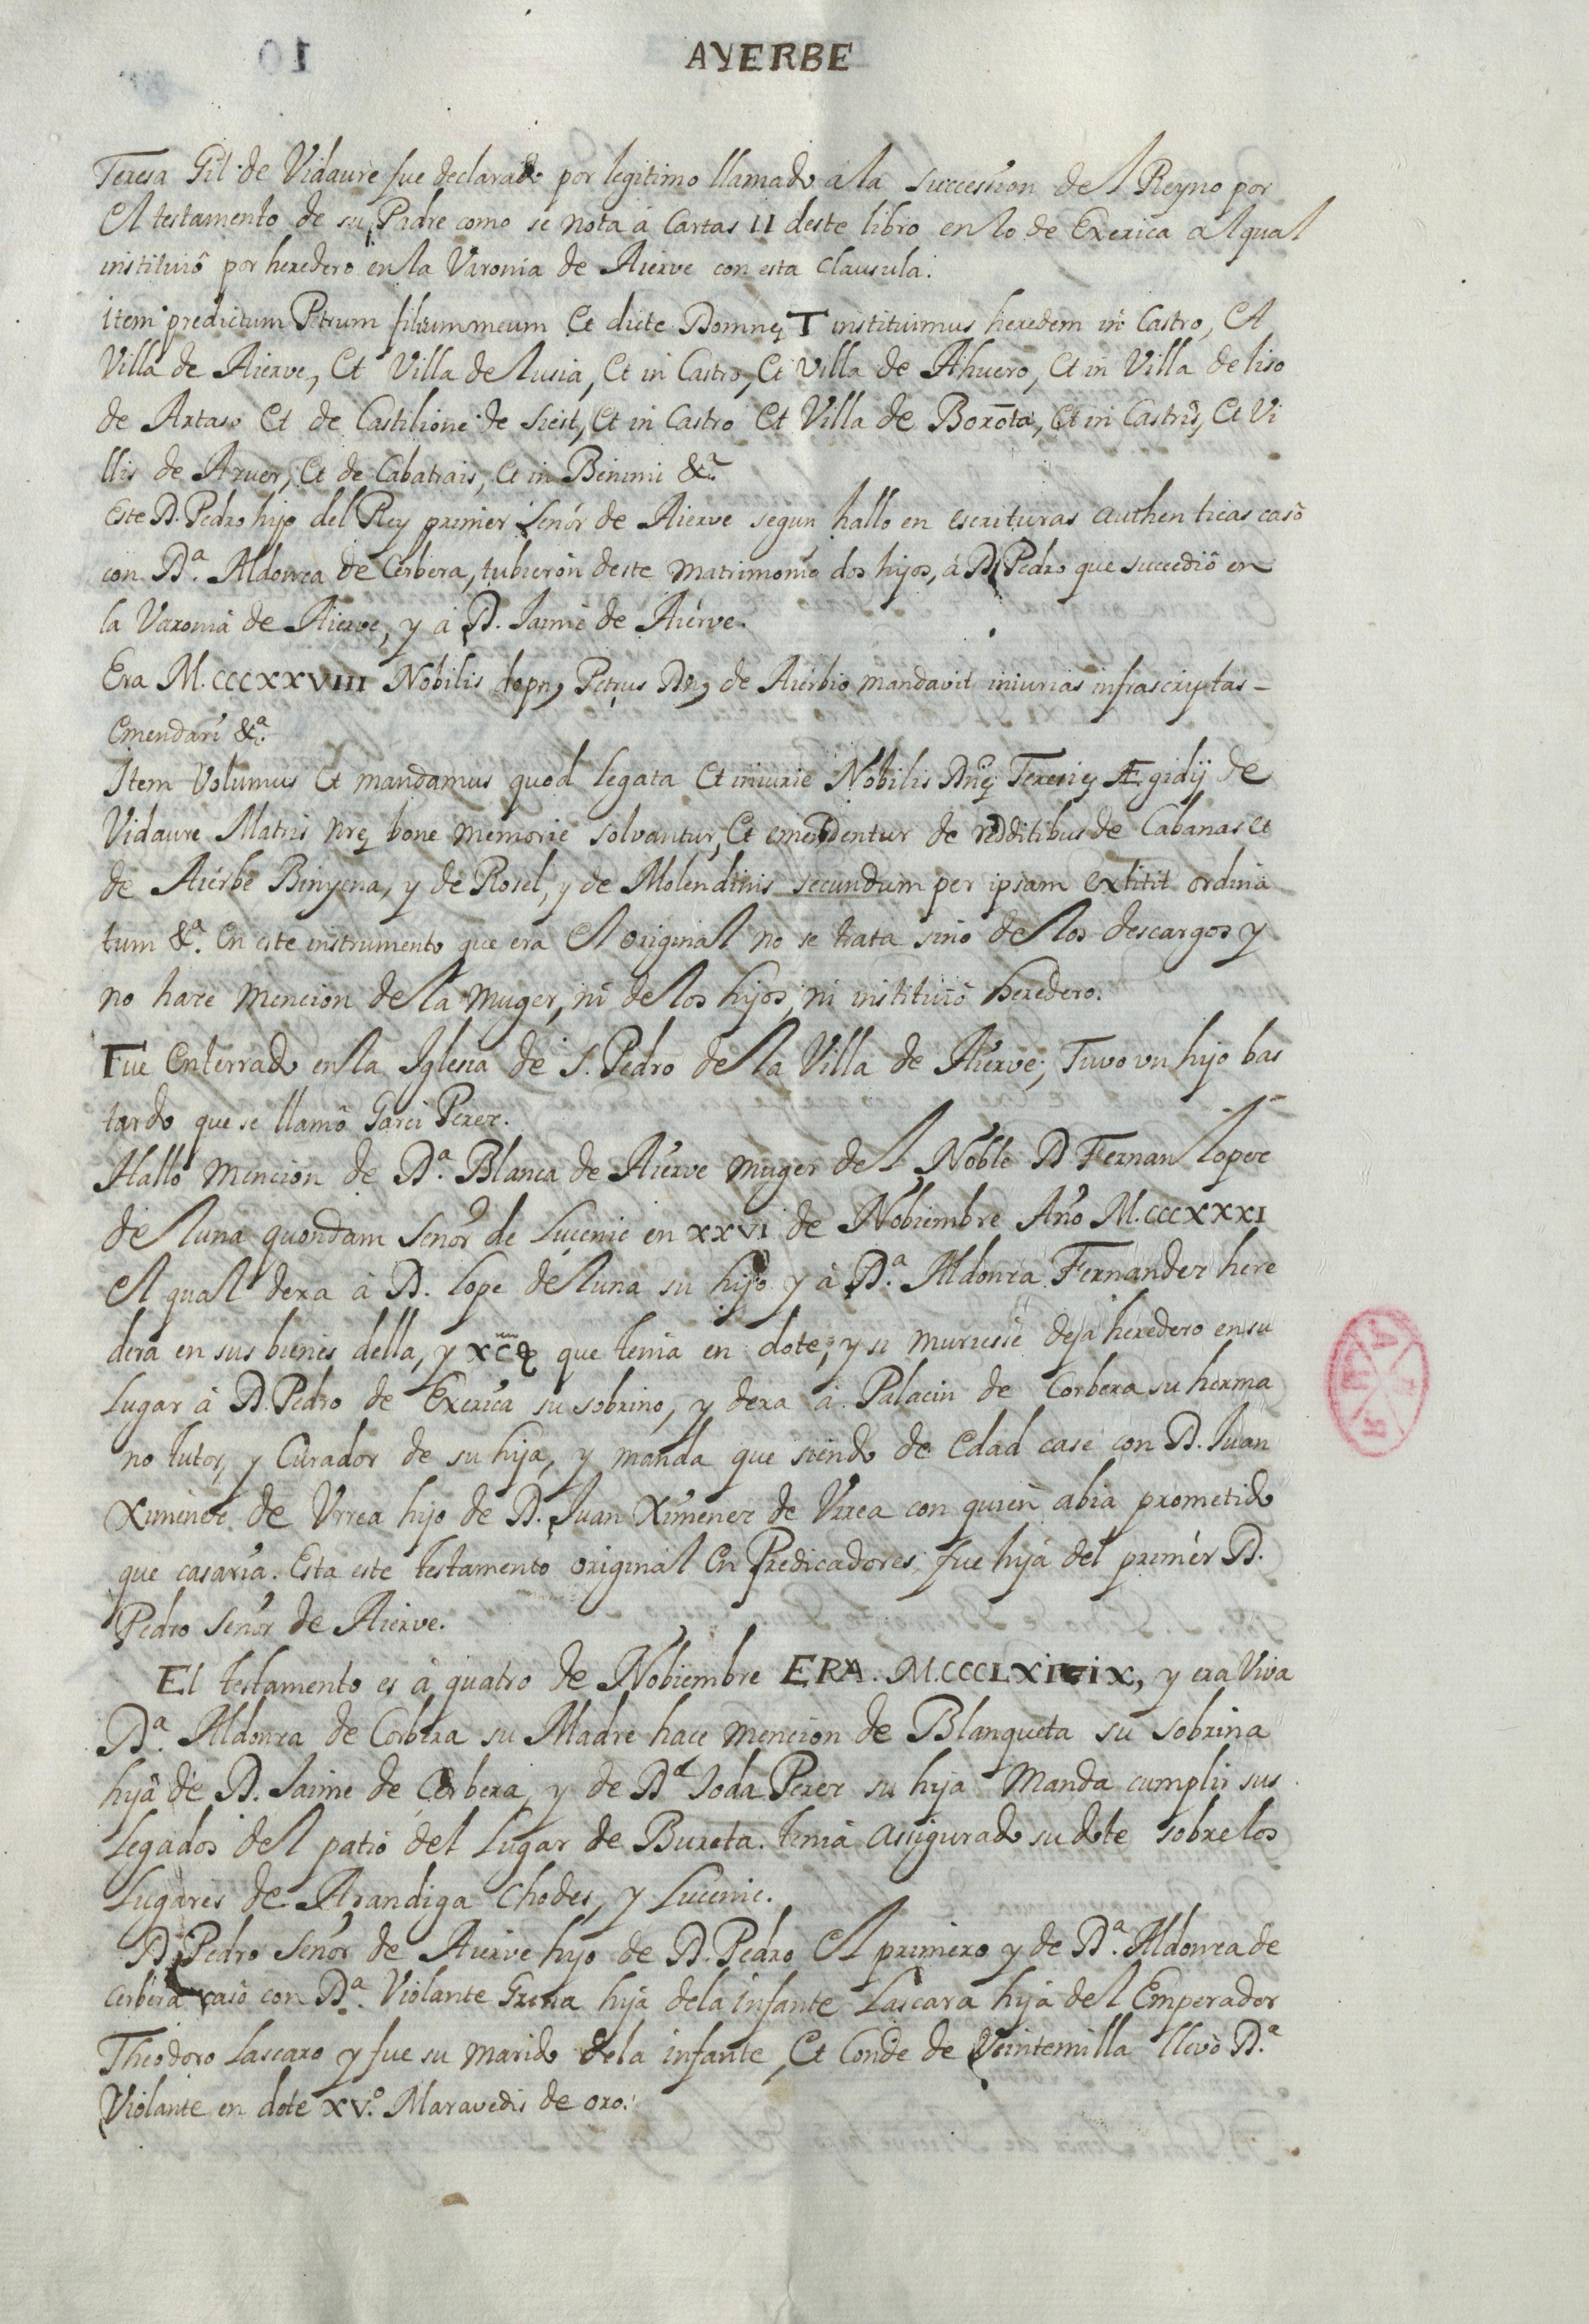 AYERBE
Teresa Gil de Vidaure fue declarado por legitimo llamado a la succession del Reyno por
el testamento de su Padre como se nota á Cartas 11 deste libro en lo de Exerica al qual
instituió por heredero en la Varonia de Aierve con esta clausula.
item predictum Petrum filium meum et dicte Domnę T instituimus heredem in Castro, et
Villa de Aierve, et Villa de Lusia, et in Castro, et Villa de Ahuero, et in Villa de liso
de Artaso et de Castilione de siest, et in Castro et Villa de Borota, et in Castris, et Vi
llis de Azuer, et de Cabatrais, et in Benimi &ª
Este D. Pedro hijo del Rey primer Señor de Aierve segun hallo en escrituras authenticas casó
con Dª. Aldonza de Cerbera, tubieron deste Matrimonio dos hijos, á D. Pedro que succedió en
la Varonia de Aierve, y á D. Jaime de Aierve.
Era M.CCCXXVIII Nobilis Petrus de Aierbio mandavit iniurias infrascriptas
emendari &ª.
Item Volumus et mandamus quod legata et iniurie Nobilis Dnę Teresię Ægidij de
Vidaure Matris nrę bone memorie solvantur, et emendentur de redditibus de Cabanas et
de Aierbe Binyena, y de Rosel, y de Molendinis secundum per ipsam extitit ordina
tum &ª. En este instrumento que era el original no se trata sino de los descargos y
no hace mencion de la Muger, ni de los hijos, ni instituió heredero.
Fue enterrado en la Iglesia de S. Pedro de la Villa de Aierve; Tuvo un hijo bas
tardo que se llamó Garci Perez.
Hallo mencion de Dª. Blanca de Aierve muger del Noble D Fernan lopez
de luna quondam Señor de Luçenic en XXVI de Nobiembre Año M.CCCXXXI
el qual dexa á D. Lope de luna su hijo y á Dª. Aldonza Fernandez here
dera en sus bienes della, y que tenia en dote, y si muriesse deja heredero en su
Lugar á D. Pedro de Exerica su sobrino, y dexa á Palacin de Corbera su herma
no tutor, y Curador de su hija, y manda que siendo de edad case con D. Juan
Ximenez de Urrea hijo de D. Juan Ximenez de Urrea con quien abia prometido
que casaria. Esta este testamento original en Predicadores fue hija del primer D.
Pedro Señor de Aierve.
El testamento es á quatro de Nobiembre ERA. y era Viva
Dª. Aldonza de Corbera su Madre hace mencion de Blanqueta su sobrina
hija de D. Jaime de Corbera, y de Dª Toda Perez su hija Manda cumplir sus
Legados del patio del Lugar de Bureta. tenia assigurado su dote sobre los
Lugares de Arandiga Chodes, y Lucenic.
D. Pedro Señor de Aierve hijo de D. Pedro el primero y de Dª. Aldonza de
Cerbera casó con Dª. Violante Griega hija de la infante Lascara hija del Emperador
Theodoro Lascaro y fue su marido de la infante, et Conde de Veintemilla llevó Dª.
Violante en dote XVº. Maravedis de oro.